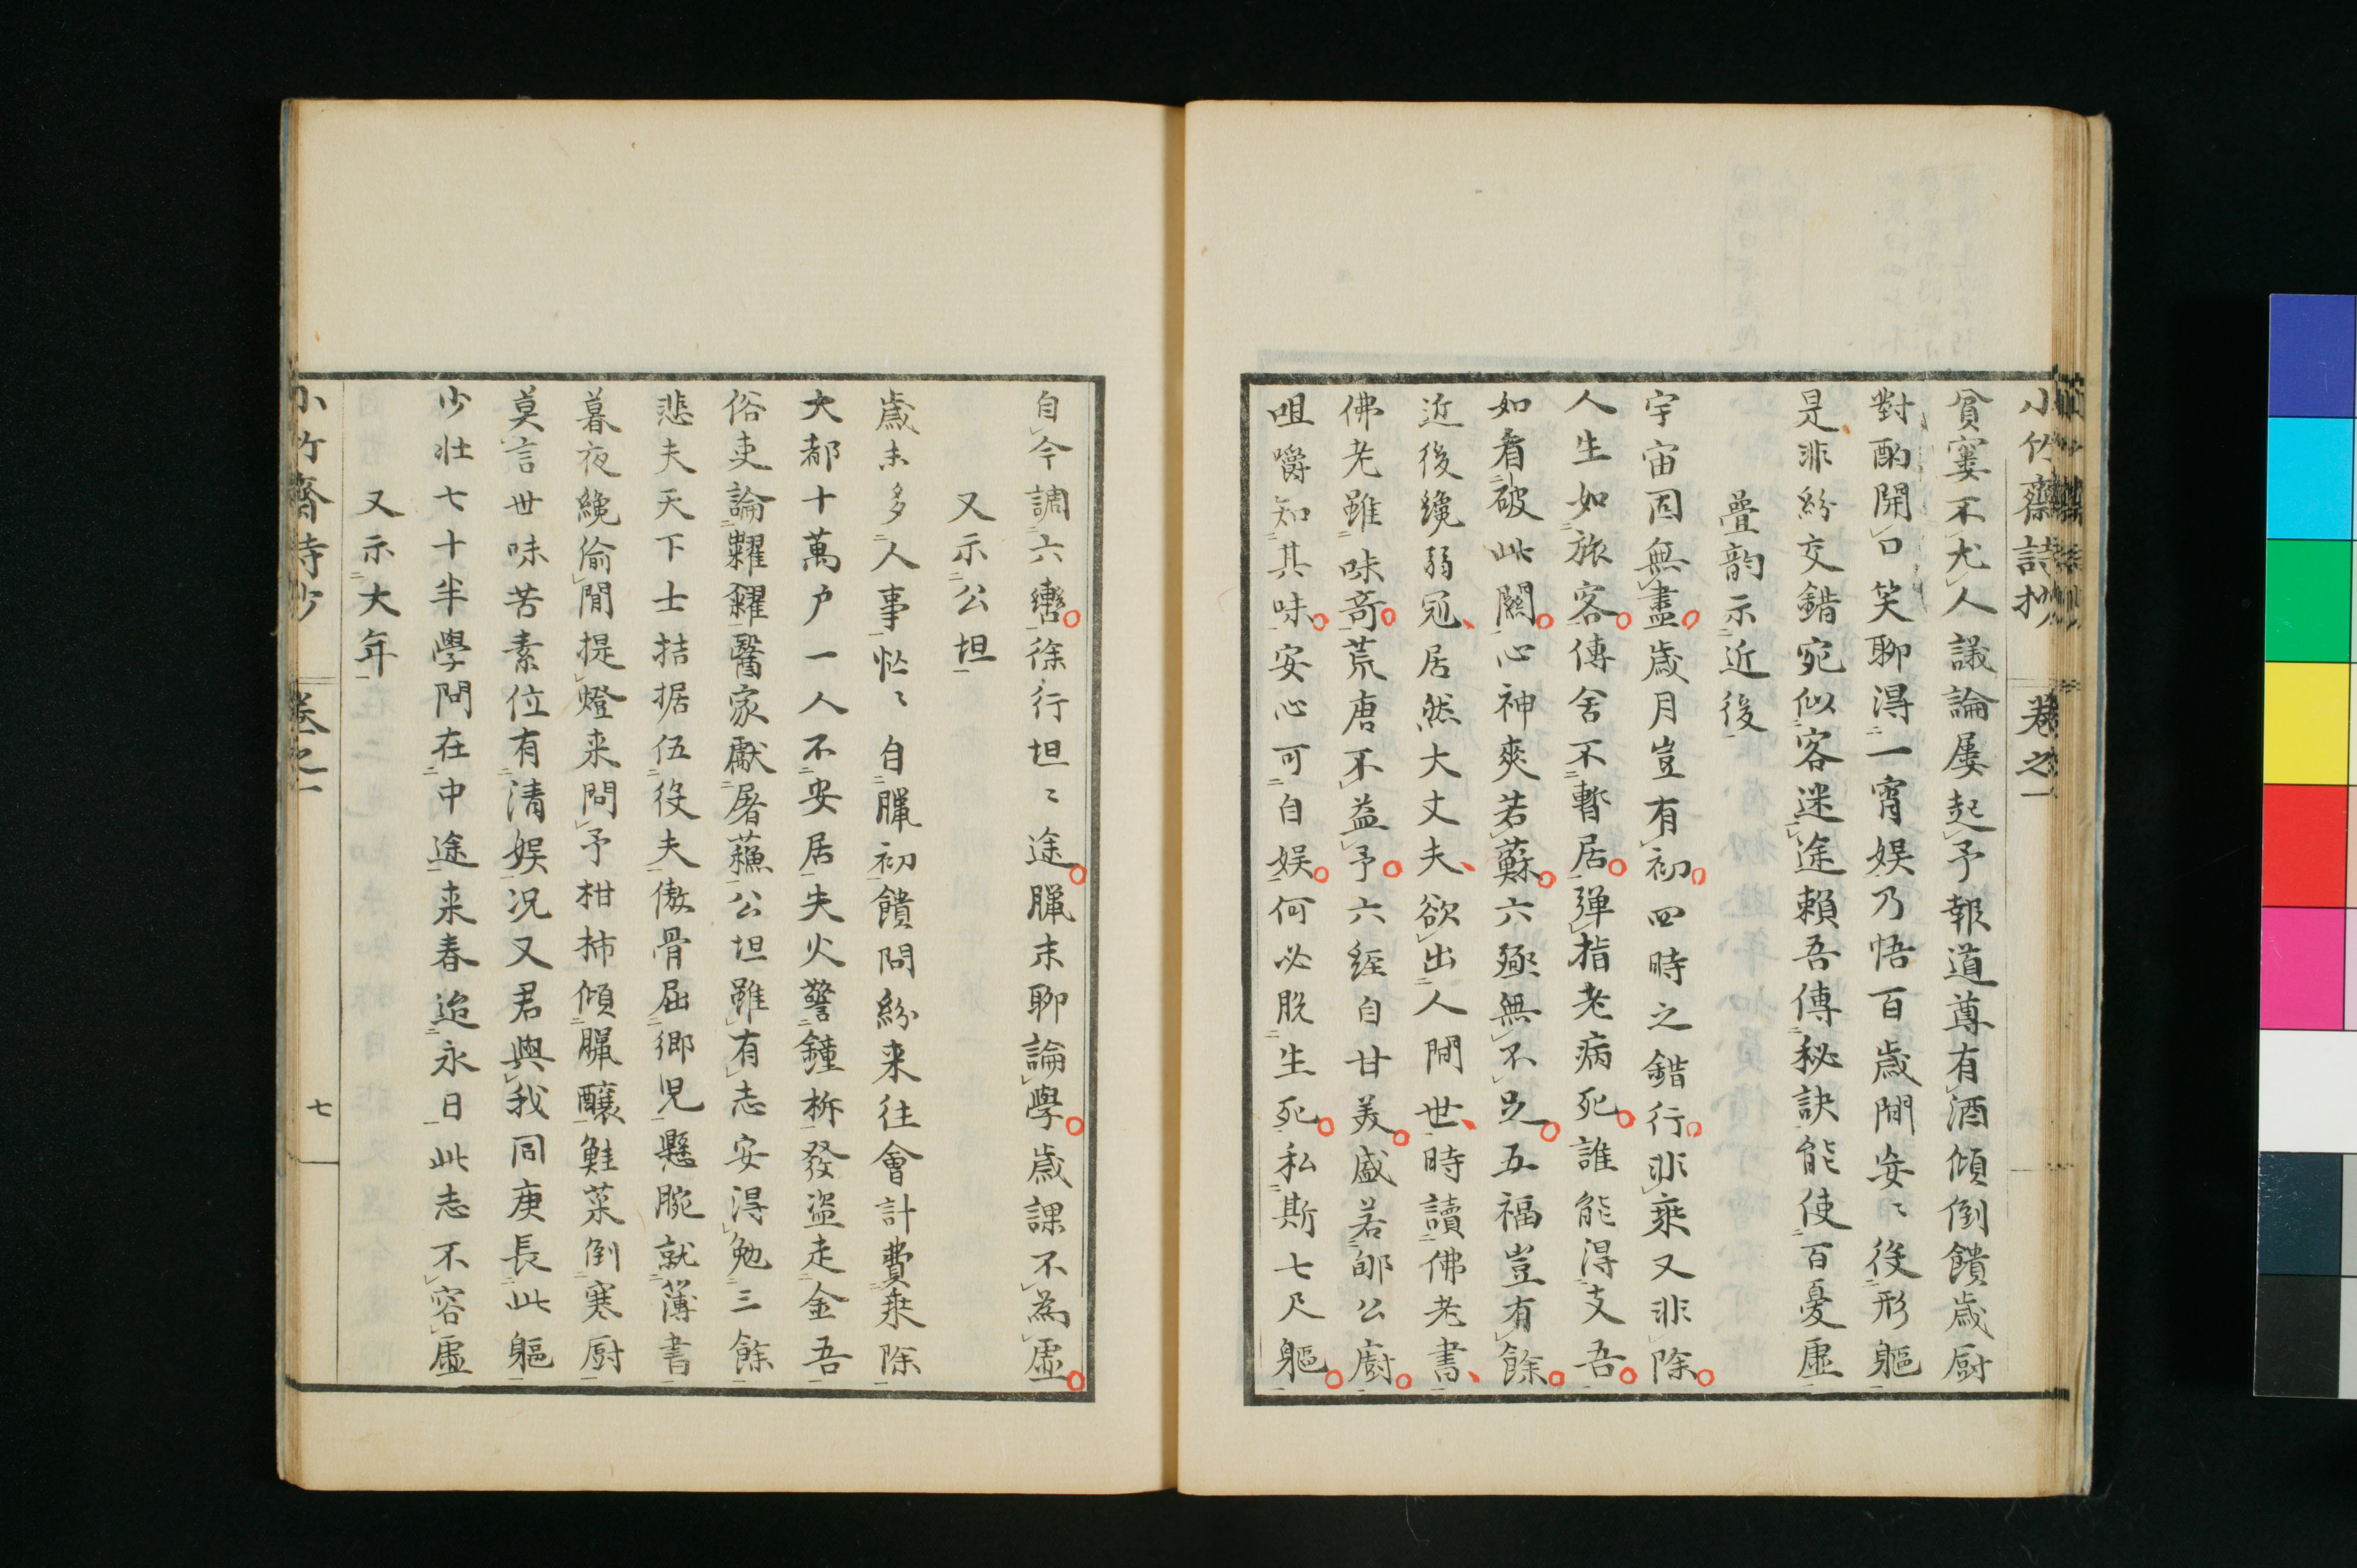 小竹齋詩抄 卷之一
貧窶不尤人議論屡起予報道尊有酒傾倒饋歳厨
對酌開口笑聊得一宵娯乃悟百歳間妄〻役形軀
是非紛交錯宛似客迷途頼吾傳秘訣能使百憂虚
疊韵示近後
宇宙固無盡歳月豈有初四時之錯行非乗又非除
人生如旅客傳舍不暫居弾指老病死誰能得支吾
如看破此關心神爽若蘇六極無不足五福豈有餘
近後纔弱冠居然大丈夫欲出人間世時讀佛老書
佛老雖味竒荒唐不益予六経自甘美盛若郇公廚
咀嚼知其味安心可自娯何必脱生死私斯七尺軀
自今調六轡徐行坦〻途臘末聊論學歳課不為虚
又示公坦
歳末多人事忙〻自臘初饋問紛来往會計費乗除
大都十萬户一人不安居失火警鐘柝發盗走金吾
俗吏論糶糴醫家獻屠蘓公坦雖有志安得勉三餘
悲夫天下士拮据伍役夫傲骨屈郷児懸腕就薄書
暮夜纔偷間提燈来問予柑柿傾臘醸鮭菜倒寒厨
莫言世味苦素位有清娯况又君與我同庚長此軀
少壮七十半學問在中途来春迨永日此志不容虚
又示大年
小竹齋詩抄 卷之一 七